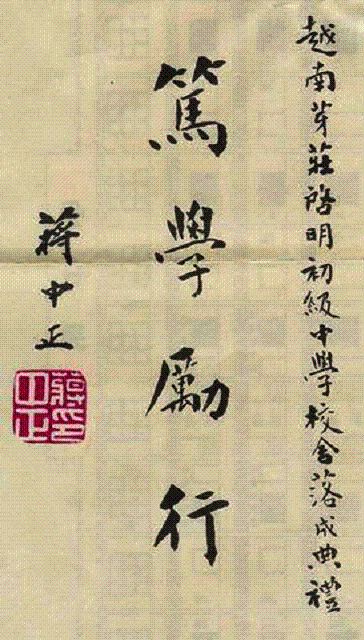 越南芽莊啓明初級中學校舍落成典禮
篤學勵行
蔣中正
蔣中正印